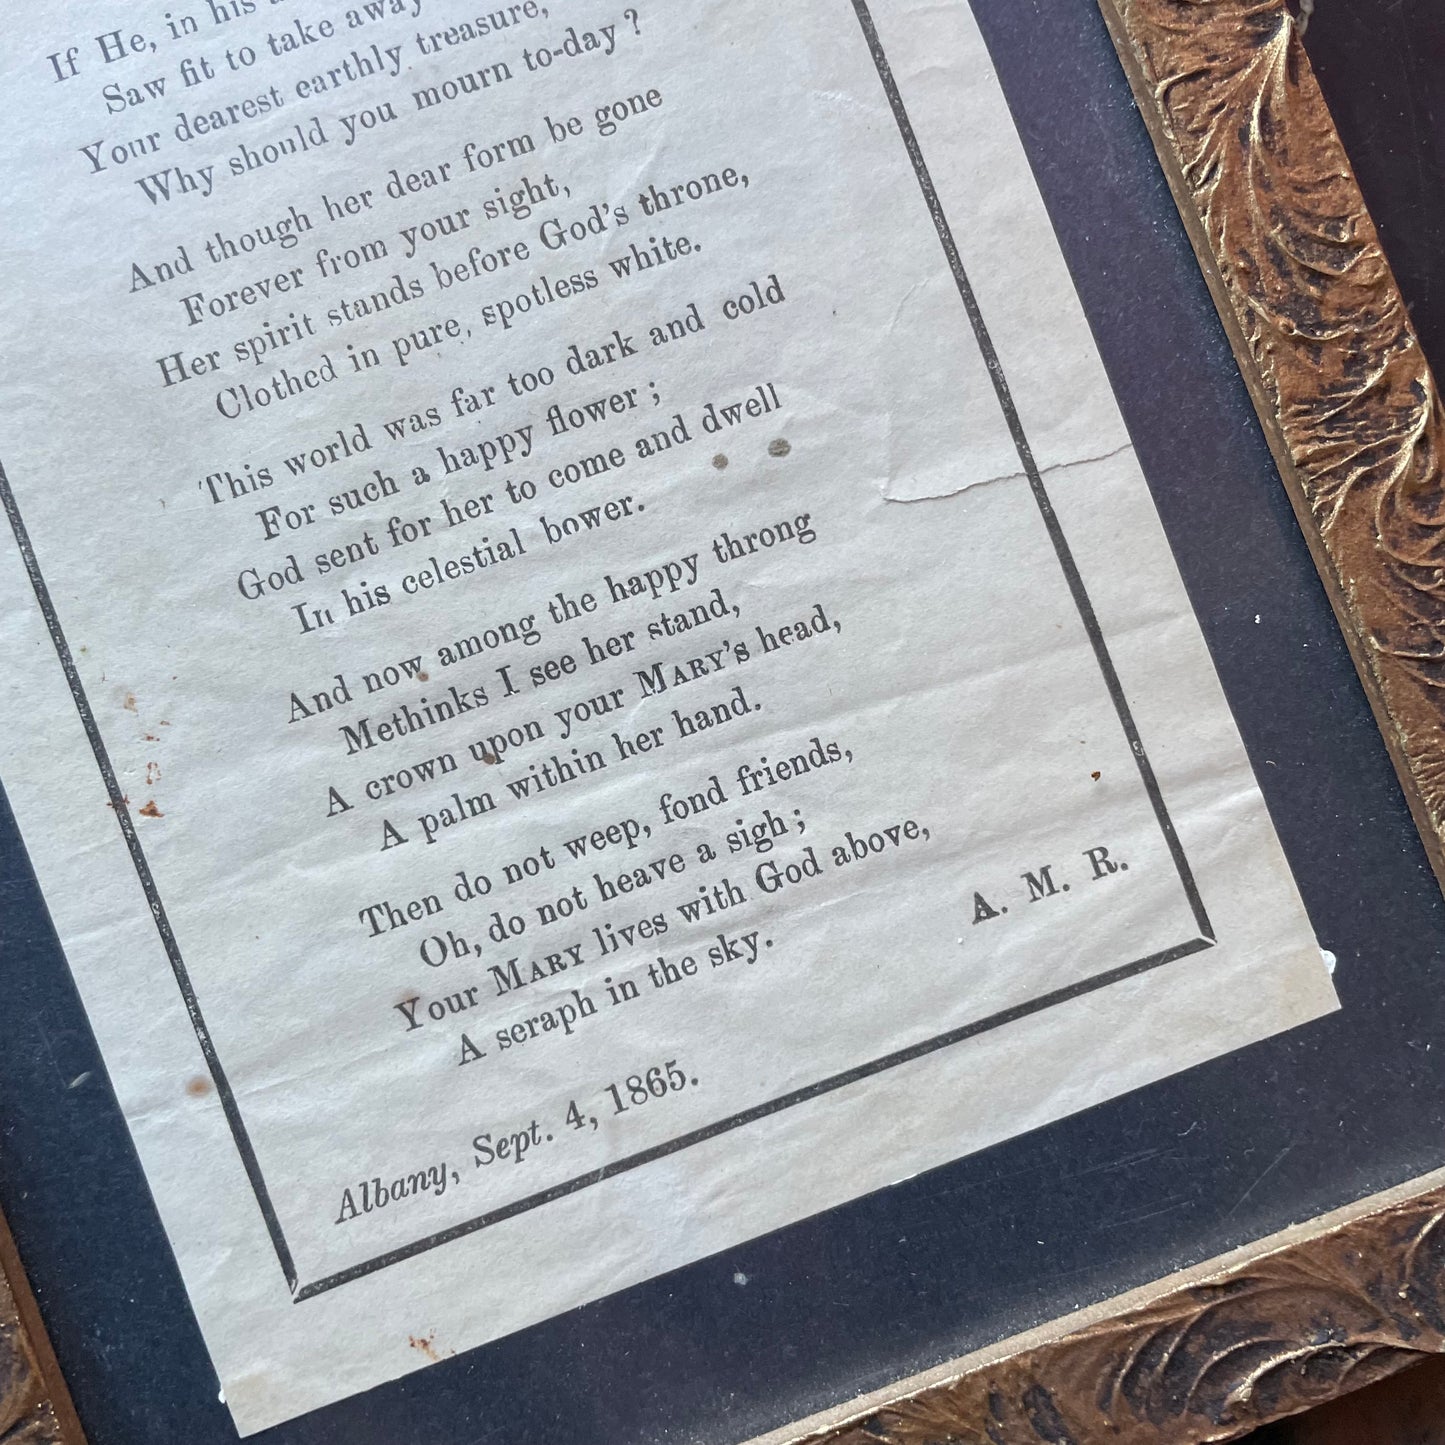 If He, in his
Saw fit to take away
Your dearest earthly treasure,
Why should you mourn to-day?
And though her dear form be gone
Forever from your sight,
Her spirit stands before God's throne,
Clothed in pure, spotless white.
This world was far too dark and cold
For such a happy flower;
God sent for her to come and dwell
In his celestial bower.
And now among the happy throng
Methinks I see her stand,
A crown upon your MARY'S head,
A palm within her hand.
Then do not weep, fond friends,
Oh, do not heave a sigh;
Your MARY lives with God above,
A seraph in the sky.
A. M. R.
Albany, Sept. 4, 1865.